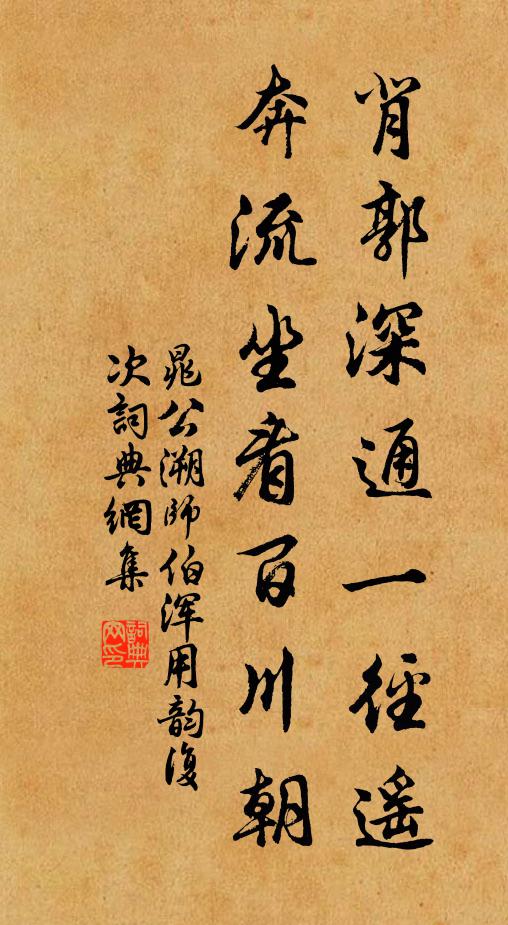 背郭深通一徑遥
奔流坐看百川朝
晁公溯師伯浑用韵復
次詞典網集
詞典
网印